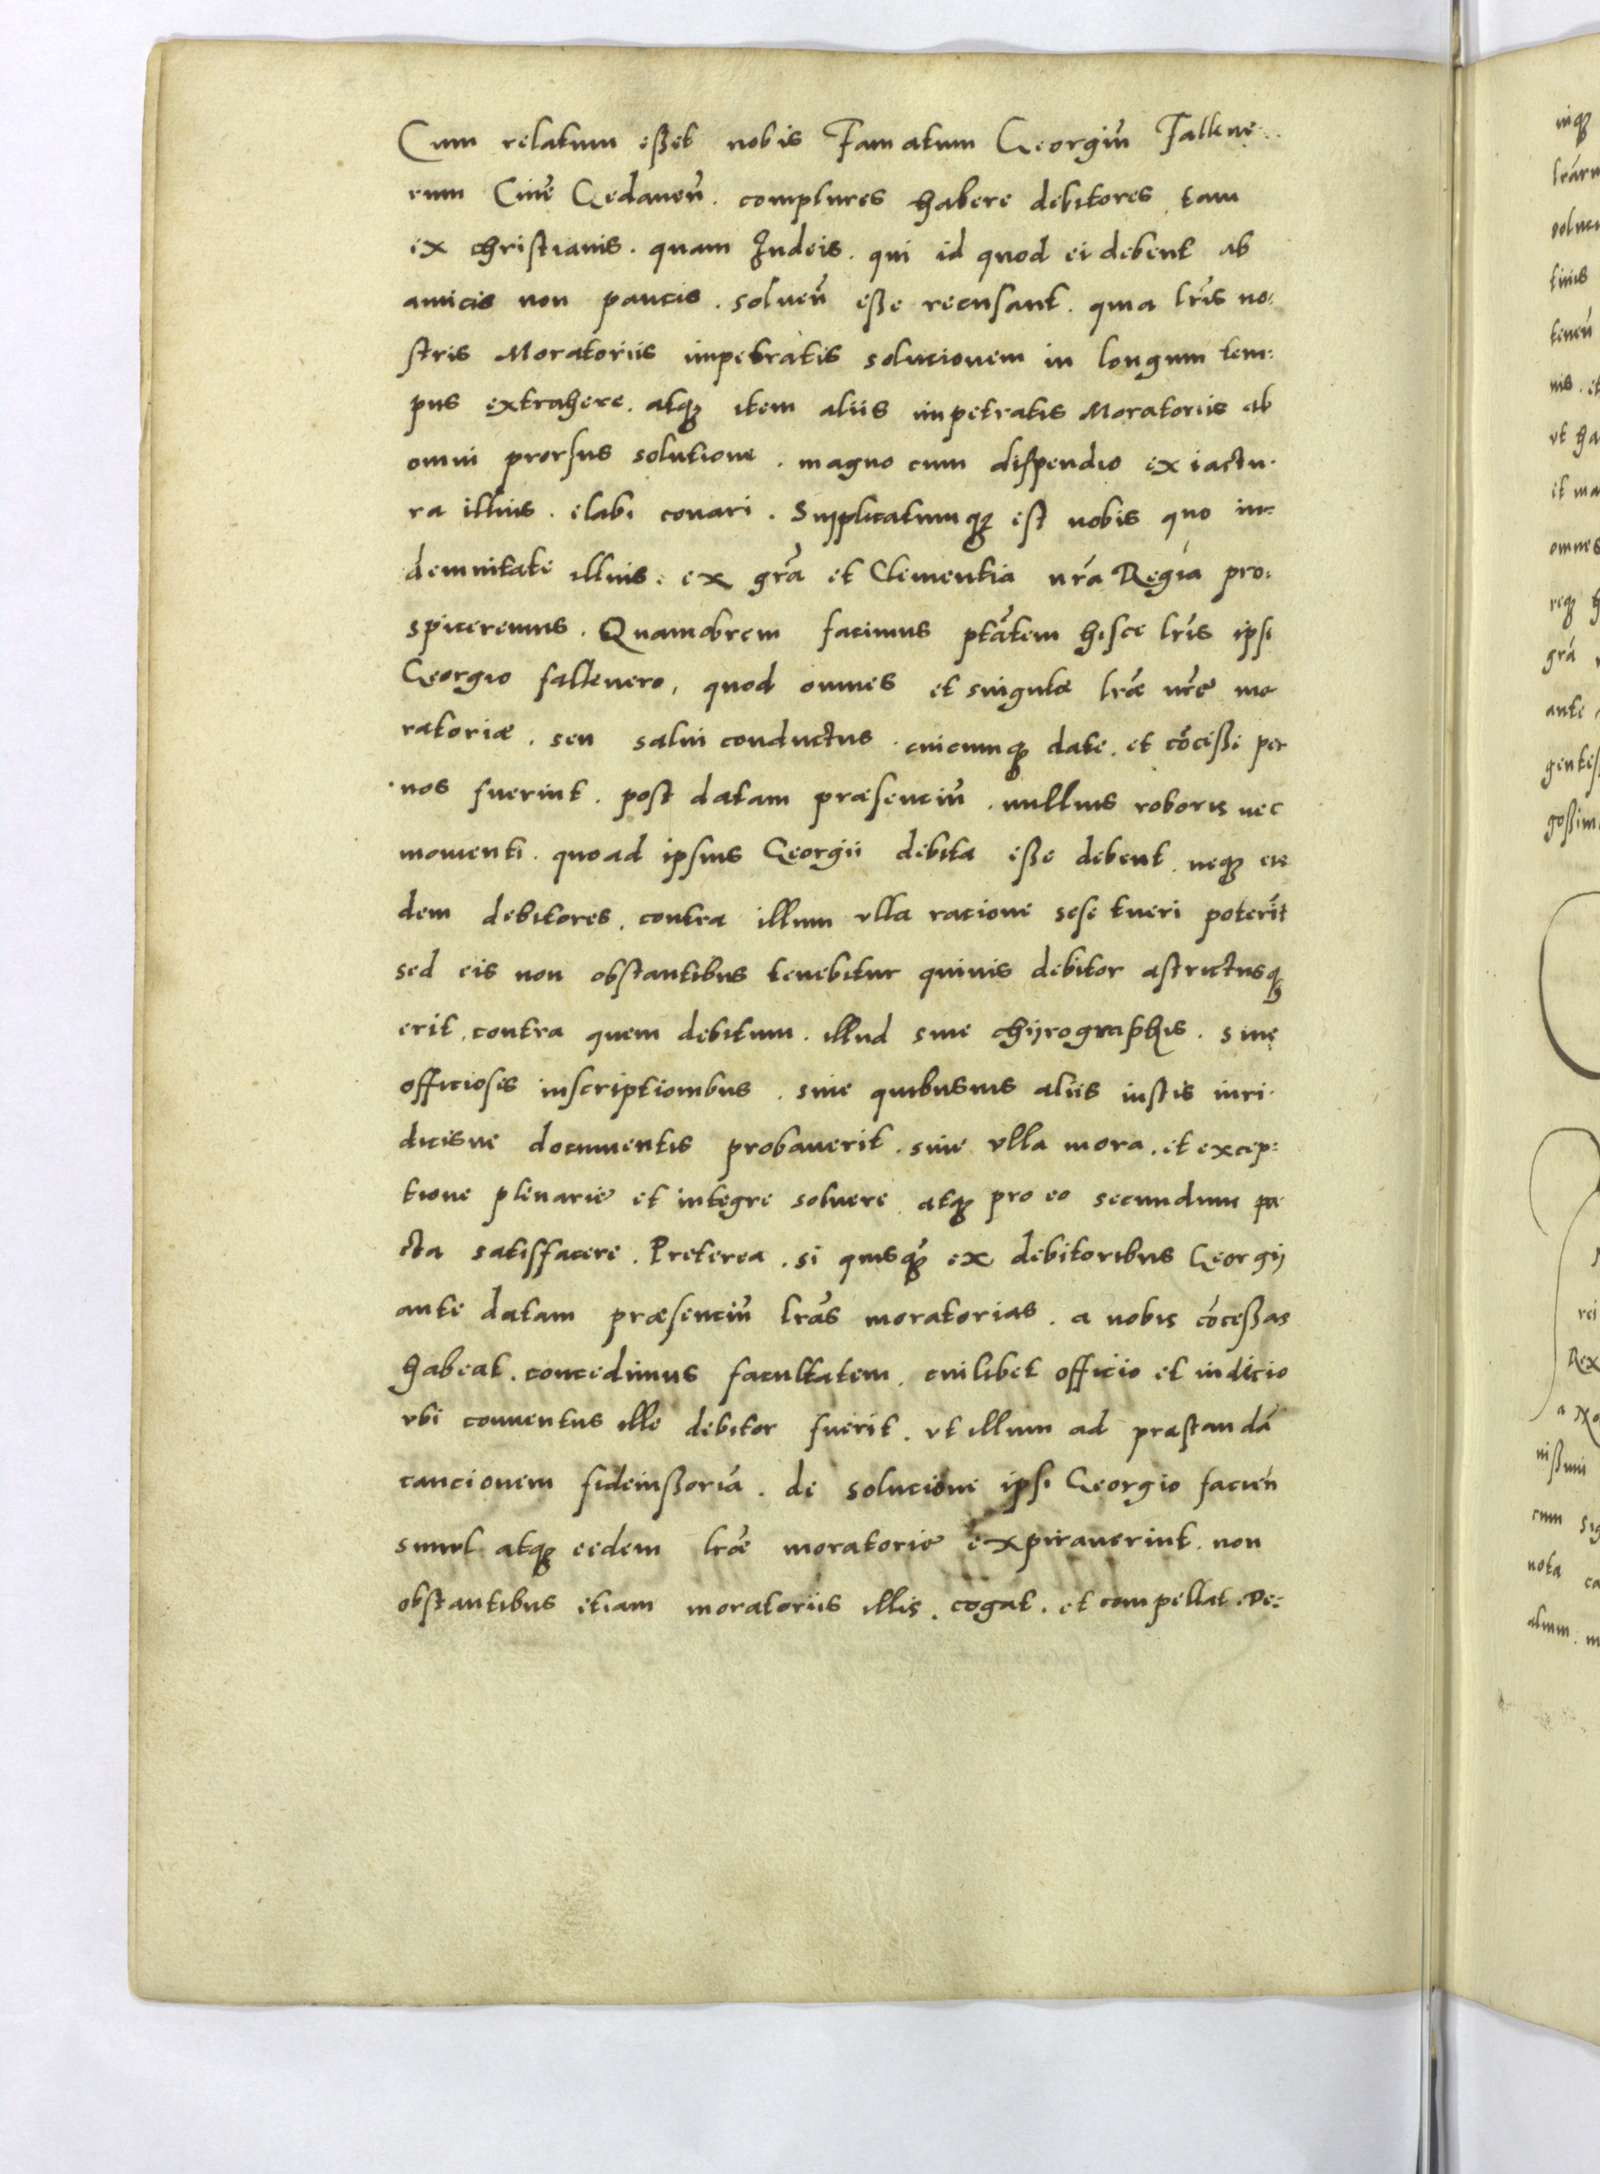 Cum relatum eßet nobis Famatum Georgiū Fallene
rum Ciuē Gedaneñ. complures habere debitores tam
ex christianis. quam Iudeis. qui id quod ei debent ab
amicis non paucis. solueñ eße recusant. quia lrĩs no:
stris Moratoriis impetratis solucionem in longum tem:
pus extrahere. atq3 item aliis impetratis Moratoriis ab
omni prorsus solutione. magno cum dispendio ex iactu.
ra illius. elabi conari. Supplicatumq3 est nobis quo in:
demnitate illius. ex grã et Clementia nrã Regia pro:
spiceremus. Quamobrem facimus ptãtem hisce lrĩs ipsi
Georgio fallenero, quod omnes et singulæ lræ̃ nrẽ mo
ratoriæ. seu salui conductus. cuicumq3 date. et cõceßi per
nos fuerint. post datam præsenciũ. nullius roboris nec
momenti. quoad ipsius Georgii debita eße debent. neq3 eie
dem debitores. contra illum vlla racione sese tueri poterĩt
sed eis non obstantibus tenebitur quiuis debitor astrictusq3
erit. contra quem debitum. illud siue chyrographis. siue
officiosis inscriptionibus. siue quibusuis aliis iustis iuri.
dicisue documentis probauerit. sine vlla mora. et excep:
tione plenarie et integre soluere. atq3 pro eo secundum pa
cta satisfacere. Preterea. si quisq3 ex debitoribus Georgij
ante datam præsenciũ lrãs moratorias. a nobis cõceßas
habeat. concedimus facultatem. cuilibet officio et iudicio
vbi conuentus ille debitor fuerit. vt illum ad præstandã
caucionem fideiußoriã. de solucione ipsi Georgio facieñ
simul atq3 eedem lræ̃ moratorie expirauerint. non
obstantibus etiam moratoriis illis. cogat. et compellat. De: